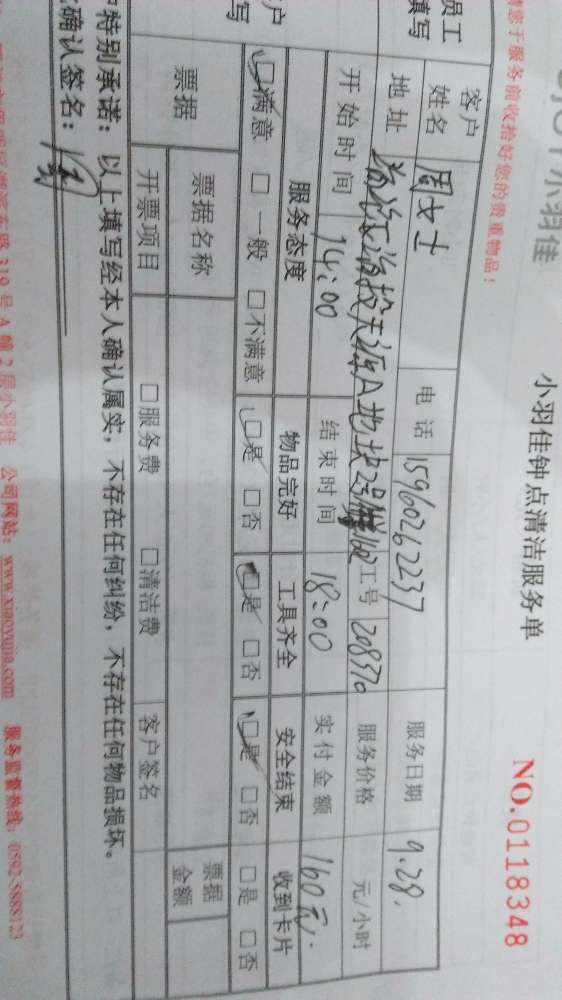 小羽佳
小羽佳钟点清洁服务单
NO.0118348
您于服务前收拾好您的贵重物品！
员工
填写
客户
姓名
周女士
电话
15960262237
服务日期
9.28.
地址
海投天源A地块2号
162
工号
208370
服务价格
元/小时
开始时间
14:00
结束时间
18:00
实付金额
160元.
客户
写
服务态度
物品完好
工具齐全
安全结束
收到卡片
☑满意 □一般 □不满意
☑是 □否
☑是 □否
☑是 □否
□是 □否
票据
票据名称
票据
金额
开票项目
□服务费 □清洁费
客户签名
特别承诺：以上填写经本人确认属实，不存在任何纠纷，不存在任何物品损坏。
确认签名：
319号A幢2层小羽佳 公司网站：www.xiaoyujia.com 服务监督热线：0592-5888123